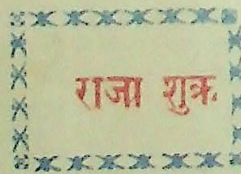 राजा शुक्र